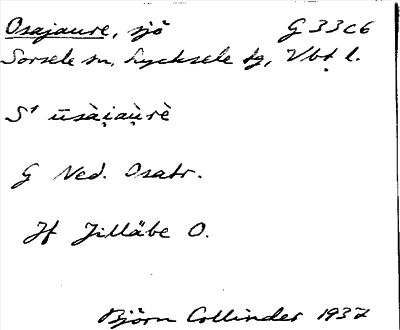 Osajaure, sjö G 33c6
Sorsele sn, Lycksele tg, Vbt l.
S¹ ūsài̯au̯rè
G Ned. Osatr.
Jf Jilläbe O.
Björn Collinder 1937